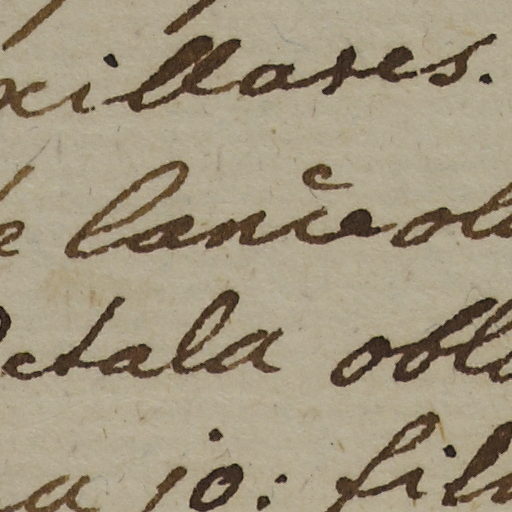 xillares.
e lanceol
Petala obl
a 10: fil